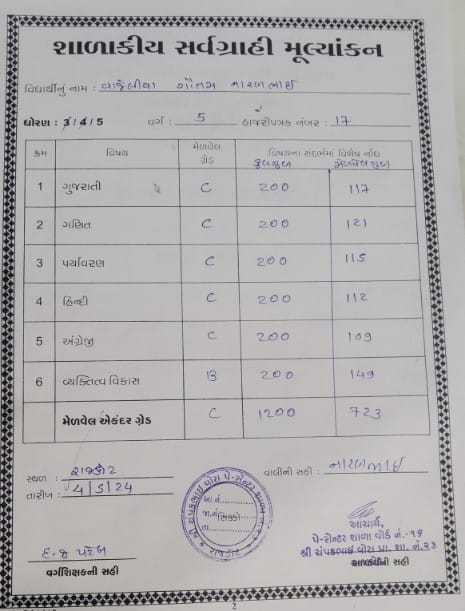 શાળાકીય સર્વગ્રાહી મૂલ્યાંકન
વિદ્યાર્થીનું નામ : વાજેલીયા ગૌતમ નારણભાઈ
ધોરણ : 3/4/5 વર્ગ : 5 હાજરીપત્રક નંબર : 17
ક્રમ વિષય મેળવેલ ગ્રેડ વિષયના સંદર્ભમાં વિશેષ નોંધ
કુલગુણ મેળવેલગુણ
1 ગુજરાતી C 200 117
2 ગણિત C 200 121
3 પર્યાવરણ C 200 115
4 હિન્દી C 200 112
5 અંગ્રેજી C 200 109
6 વ્યક્તિત્વ વિકાસ B 200 149
મેળવેલ એકંદર ગ્રેડ C 1200 723
સ્થળ : રાજકોટ વાલીની સહી : નારણભાઈ
તારીખ : 4/5/24
સિક્કો
રાજકોટ
આચાર્ય,
પે-સેન્ટર શાળા વોર્ડ નં.-૧૭
શ્રી ચંપકભાઈ વોરા પ્રા. શા. નં.૨૩
વર્ગશિક્ષકની સહી આચાર્યની સહી
2